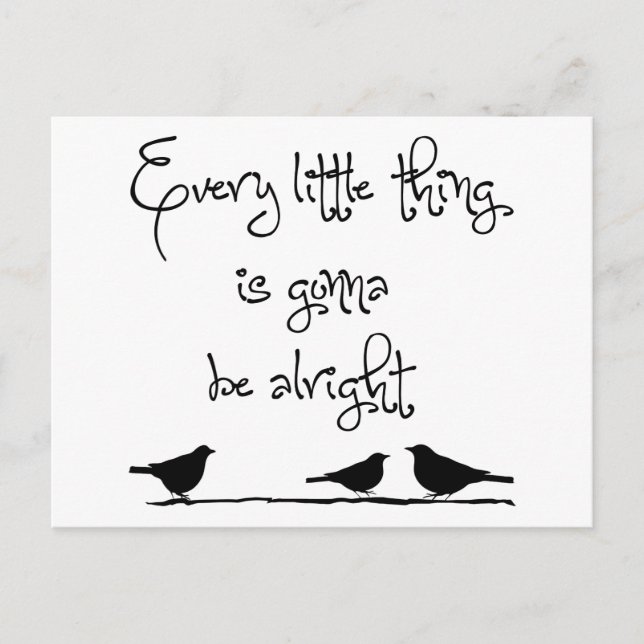 Every little thing
is gonna
be alright